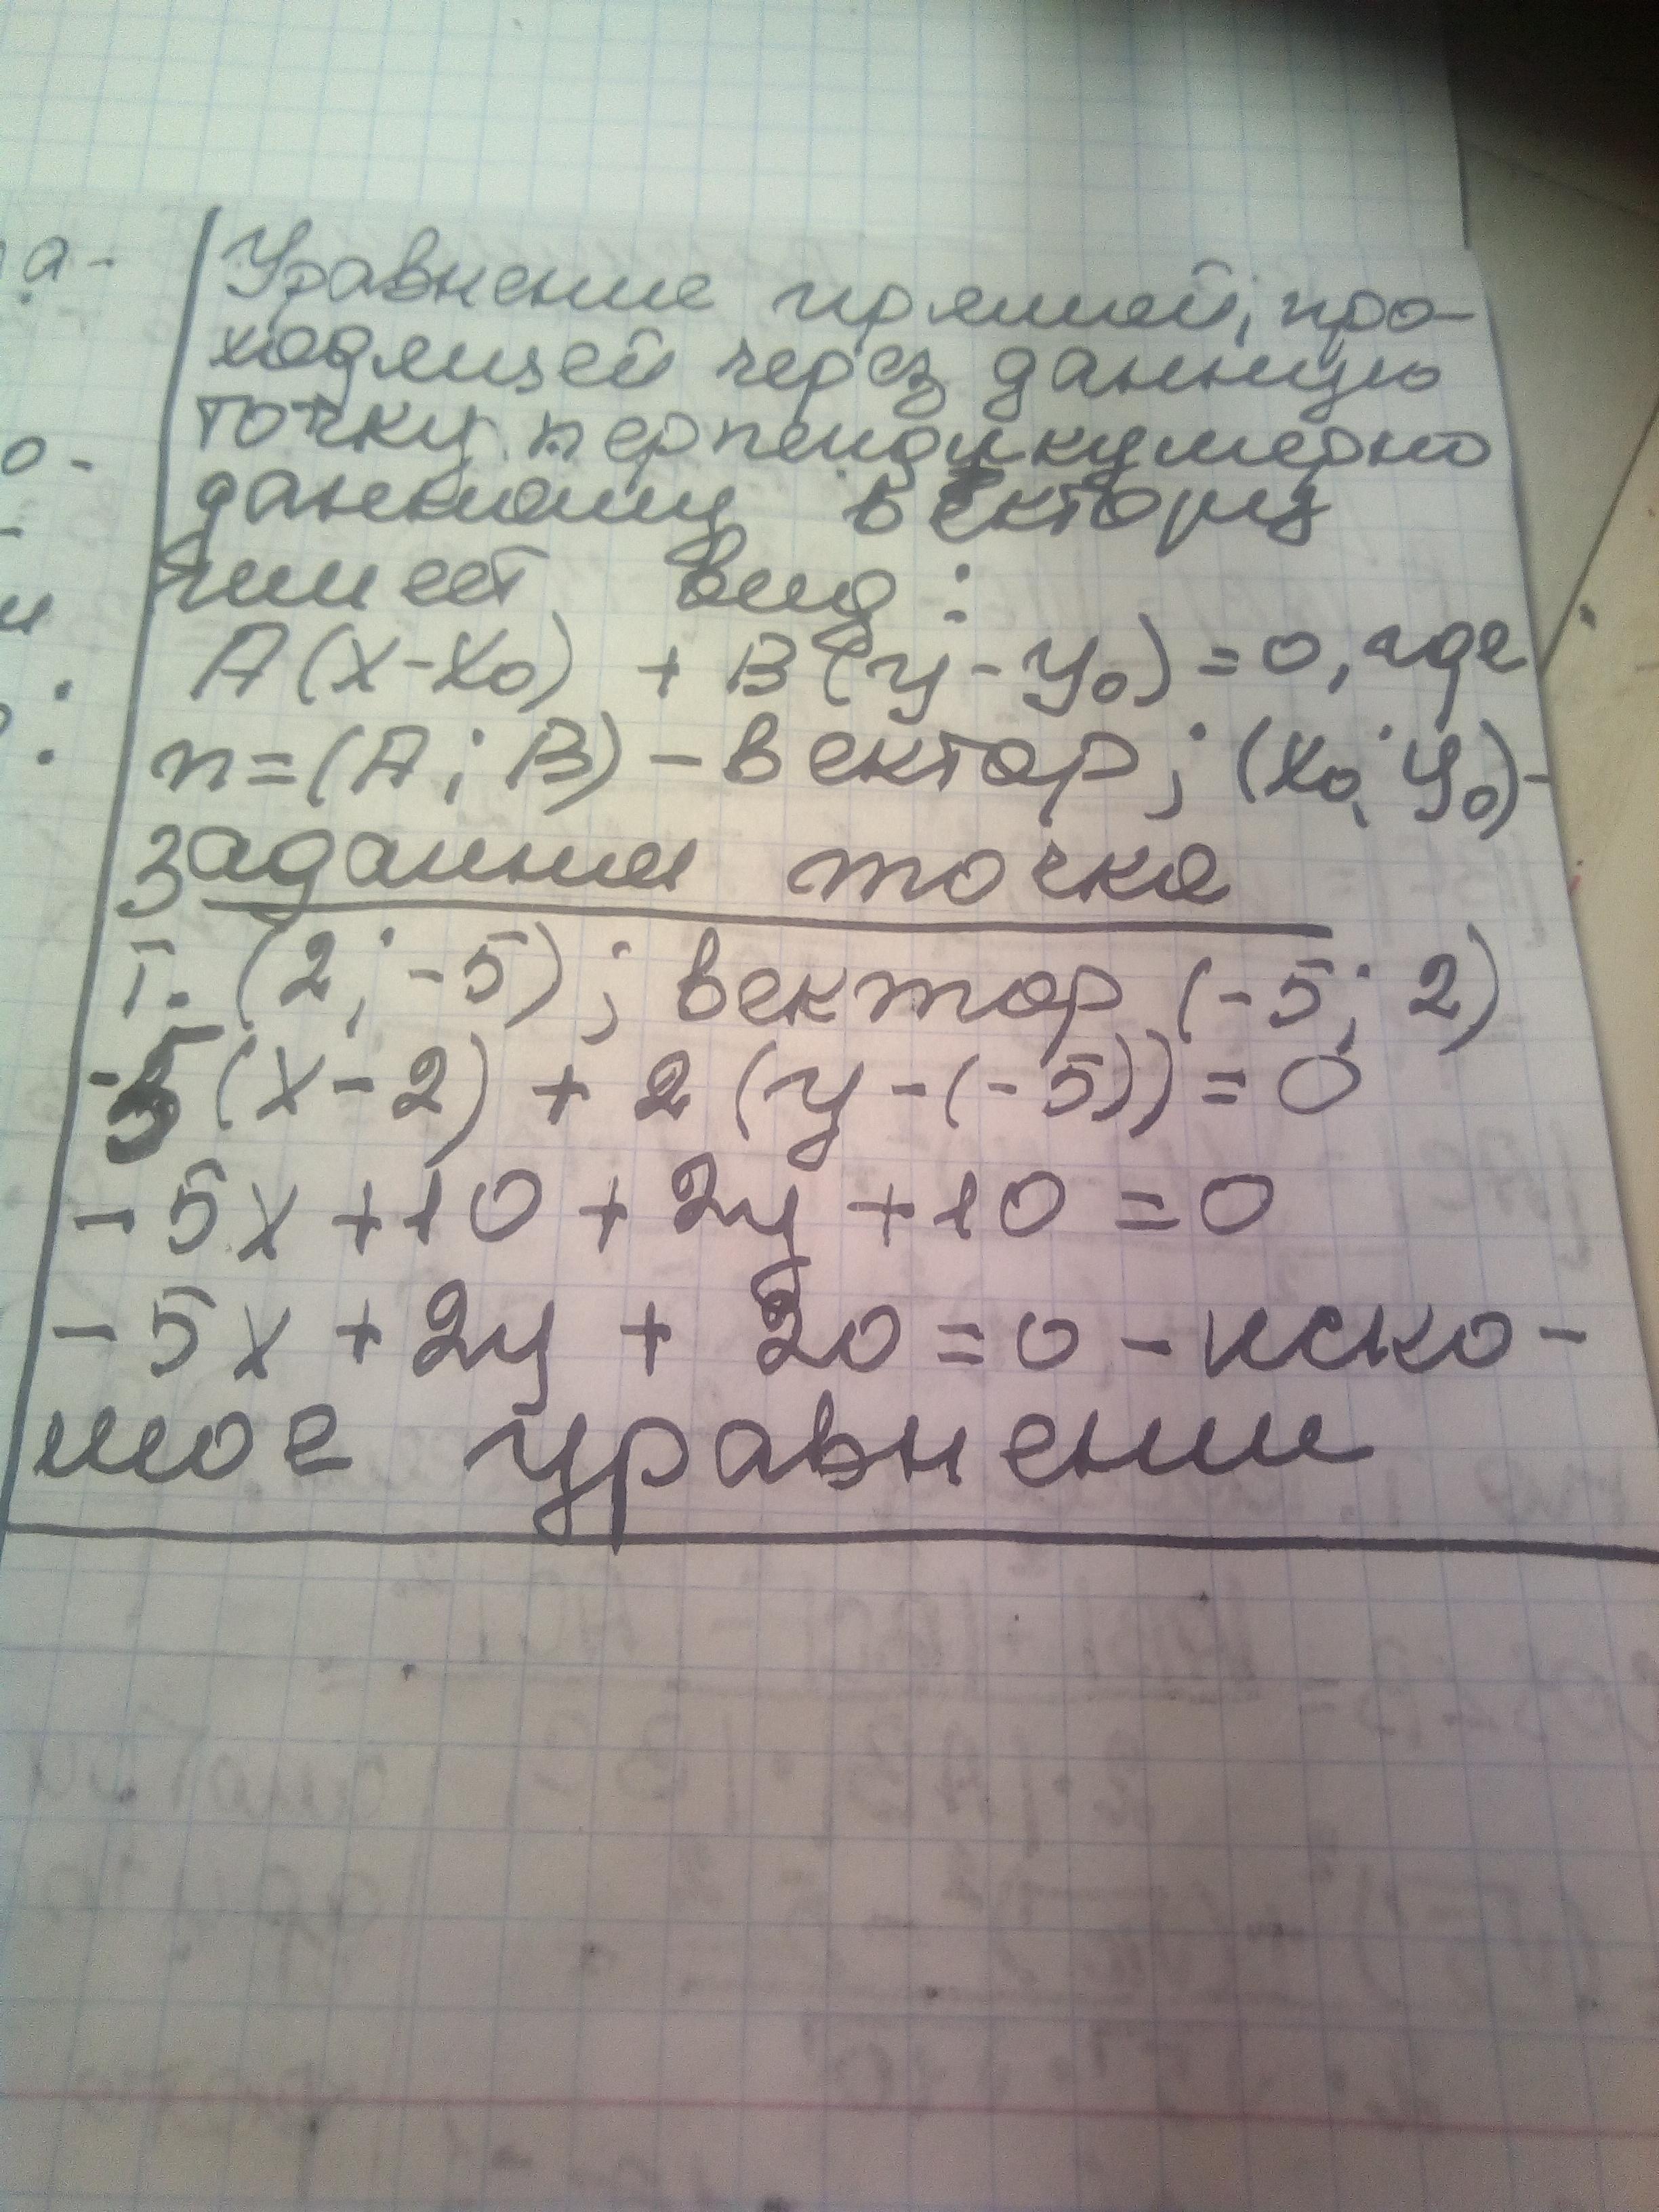 Уравнение прямой, про-
ходящей через данную
точку перпендикулярно
данному вектору
имеет вид:
A(x-x₀) + B(y-y₀)=0, где
n=(A; B) - вектор; (x₀; y₀)-
заданная точка
т. (2; -5); вектор (-5; 2)
-5(x-2) + 2(y-(-5))=0
-5x+10+2y+10=0
-5x+2y+20=0-иско-
мое уравнение
а-
о-
-
и
: